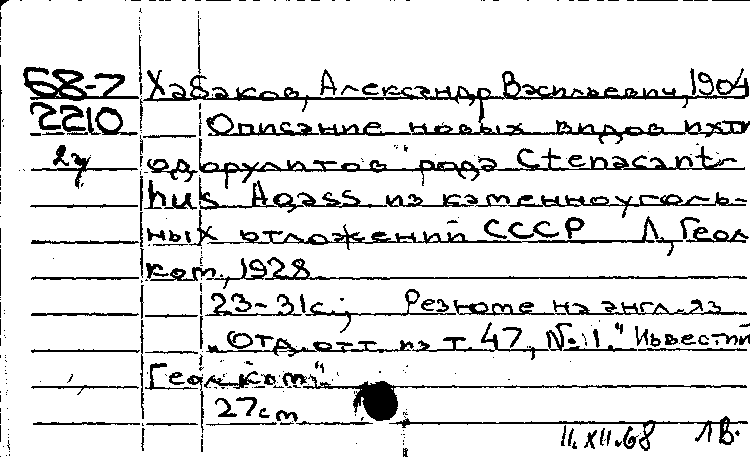 68-7 Хабаков, Александр Васильевич, 1904
2210 Описание новых видов ихти
2ч одорулитов рода Ctenacant-
hus Agass из каменноуголь-
ных отложений СССР Л, Геол
ком., 1928
23-31с.; Резюме на англ. яз
„Отд. отт. из т. 47, №11." Известий
Геол ком".
27см
11.XII.68 ЛВ.